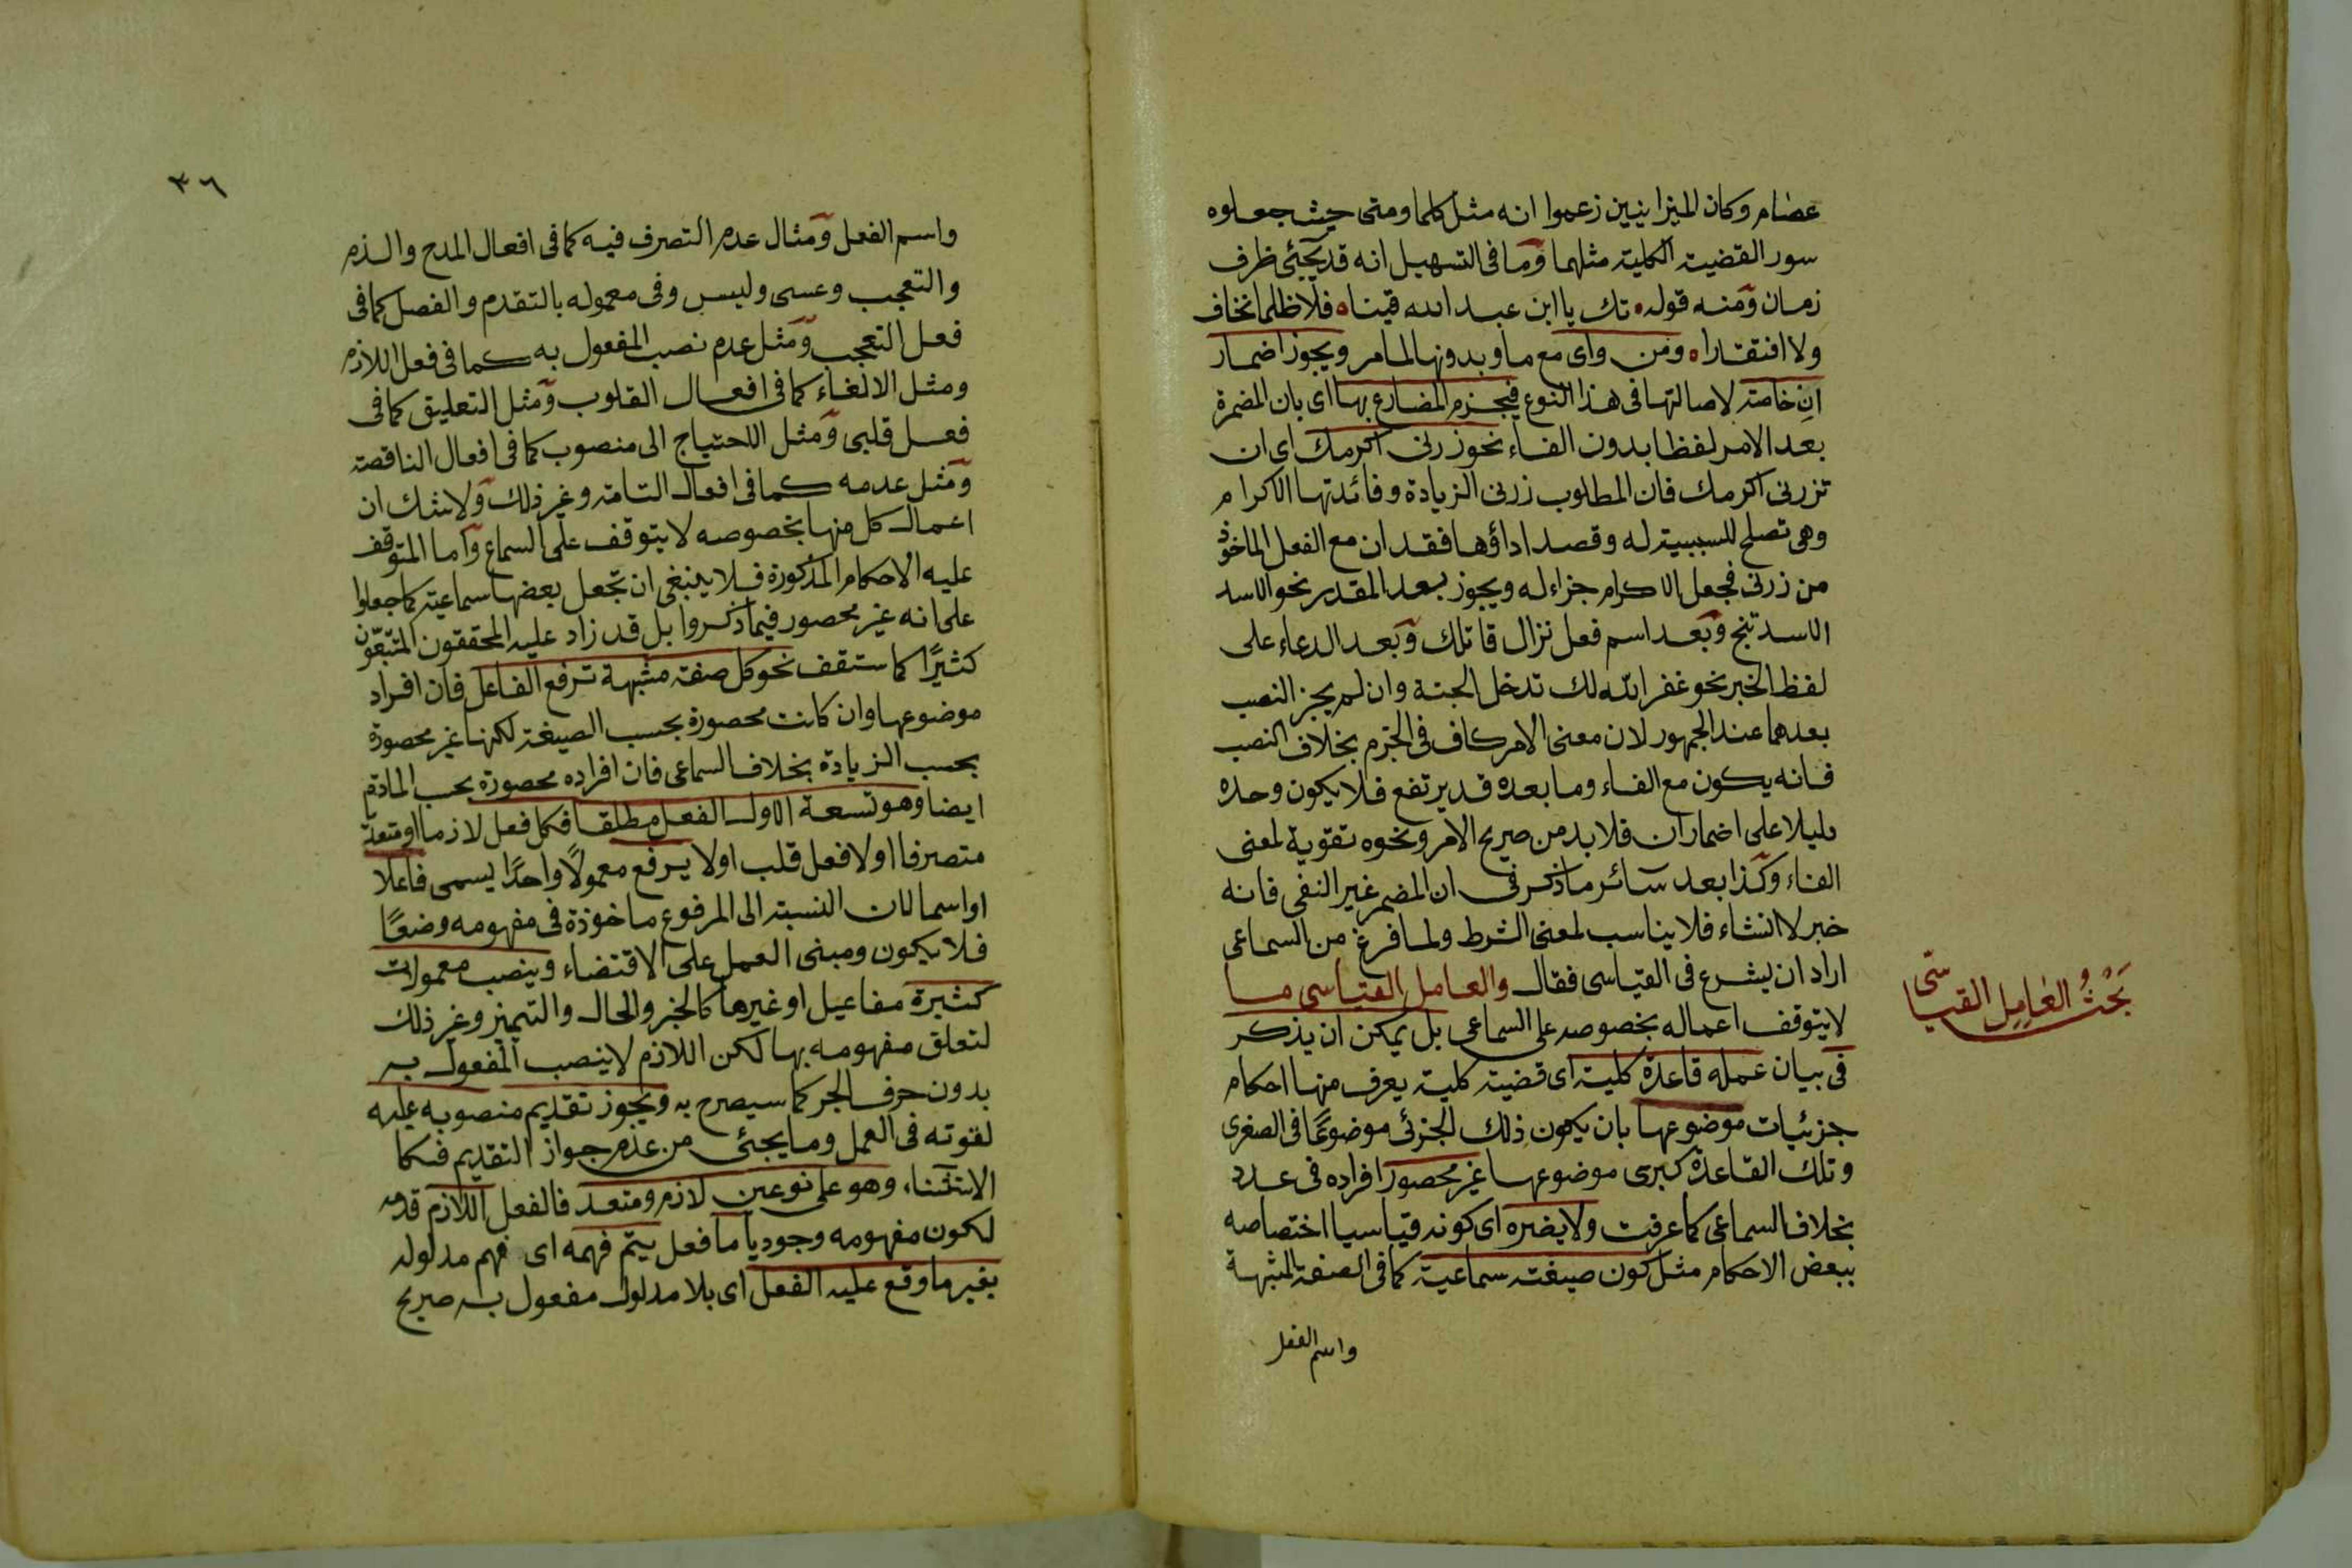 عصام وكان الميزانيين زعموا انه مثل كلما ومتى حيث جعلوه
سور القضية الكلية مثلهما وما فى التسهيل انه قد يجئ ظرف
زمان ومنه قوله تك يا ابن عبد الله فينا فلا ظلما نخاف
ولا افتقارا ومن واى مع ما وبدونها لما مر ويجوز اضمار
ان خاصة لاصالتها فى هذا النوع فيجزم المضارع بها اى بان المضمرة
بعد الامر لفظا بدون الفاء نحو زرنى اكرمك اى ان
تزرنى اكرمك فان المطلوب زرنى الزيادة وفائدتها الاكرام
وهى تصلح للسببية له وقصد اداؤها فقد ان مع الفعل الماخوذ
من زرنى فجعل الاكرام جزاء له ويجوز بعد المقدر نحو الاسد
الاسد تنج وبعد اسم فعل نزال قاتلك وبعد الدعاء على
لفظ الخبر نحو غفر الله لك تدخل الجنة وان لم يجز النصب
بعدهما عند الجمهور لان معنى الامر كاف فى الجزم بخلاف النصب
فانه يكون مع الفاء وما بعده قد يرتفع فلا يكون وحده
دليلا على اضمار ان فلا بد من صريح الامر ونحوه تقوية لمعنى
الفاء وكذا بعد سائر ما ذكر فى ان المضمر غير النفى فانه
خبر لا انشاء فلا يناسب لمعنى الشرط ولما فرغ من السماعى
اراد ان يشرع فى القياسى فقال والعامل القياسى ما
لا يتوقف اعماله بخصوصه على السماعى بل يمكن ان يذكر
فى بيان عمله قاعدة كلية اى قضية كلية يعرف منها احكام
جزئيات موضوعها بان يكون ذلك الجزئى موضوعًا فى الصغرى
وتلك القاعدة كبرى موضوعها غير محصور افراده فى عدد
بخلاف السماعى كما عرفت ولا يضره اى كونه قياسيا اختصاصه
ببعض الاحكام مثل كون صيغته سماعية كما فى الصفة المشبهة
واسم الفعل
بَحْثُ العَامِلِ القياسى
٣٦
واسم الفعل ومثال عدم التصرف فيه كما فى افعال المدح والذم
والتعجب وعسى وليس وفى معموله بالتقدم والفصل كما فى
فعل التعجب ومثل عدم نصب المفعول به كما فى فعل اللازم
ومثل الالغاء كما فى افعال القلوب ومثل التعليق كما فى
فعل قلبى ومثل الاحتياج الى منصوب كما فى افعال الناقصة
ومثل عدمه كما فى افعال التامة وغير ذلك ولا شك ان
اعمال كل منها بخصوصه لا يتوقف على السماع واما المتوقف
عليه الاحكام المذكورة فلا ينبغى ان تجعل بعضها سماعية كما جعلوا
على انه غير محصور فيما ذكروا بل قد زاد عليه المحققون المتبعون
كثيرًا كما ستقف نحو كل صفة مشبهة ترفع الفاعل فان افراد
موضوعها وان كانت محصورة بحسب الصيغة لكنها غير محصورة
بحسب الزيادة بخلاف السماعى فان افراده محصورة بحسب المادة
ايضا وهو تسعة الاول الفعل مطلقا فكل فعل لازما او متعد
متصرفا اولا فعل قلب اولا يرفع معمولًا واحدًا يسمى فاعلا
او اسما لان النسبة الى المرفوع ماخوذة فى مفهومه وضعًا
فلا يكون ومبنى العمل على الاقتضاء وينصب معمولات
كثيرة مفاعيل او غيرها كالخبر والحال والتمييز وغير ذلك
لتعلق مفهومه بها لكن اللازم لا ينصب المفعول به
بدون حرف الجر كما سيصرح به ويجوز تقديم منصوبه عليه
لقوته فى العمل وما يجئى من عدم جواز التقديم فكما
الاستثناء وهو على نوعين لازم ومتعد فالفعل اللازم قدمه
لكون مفهومه وجوديا ما فعل يتم فهمه اى فهم مدلوله
بغير ما وقع عليه الفعل اى بلا مدلول مفعول به صريح